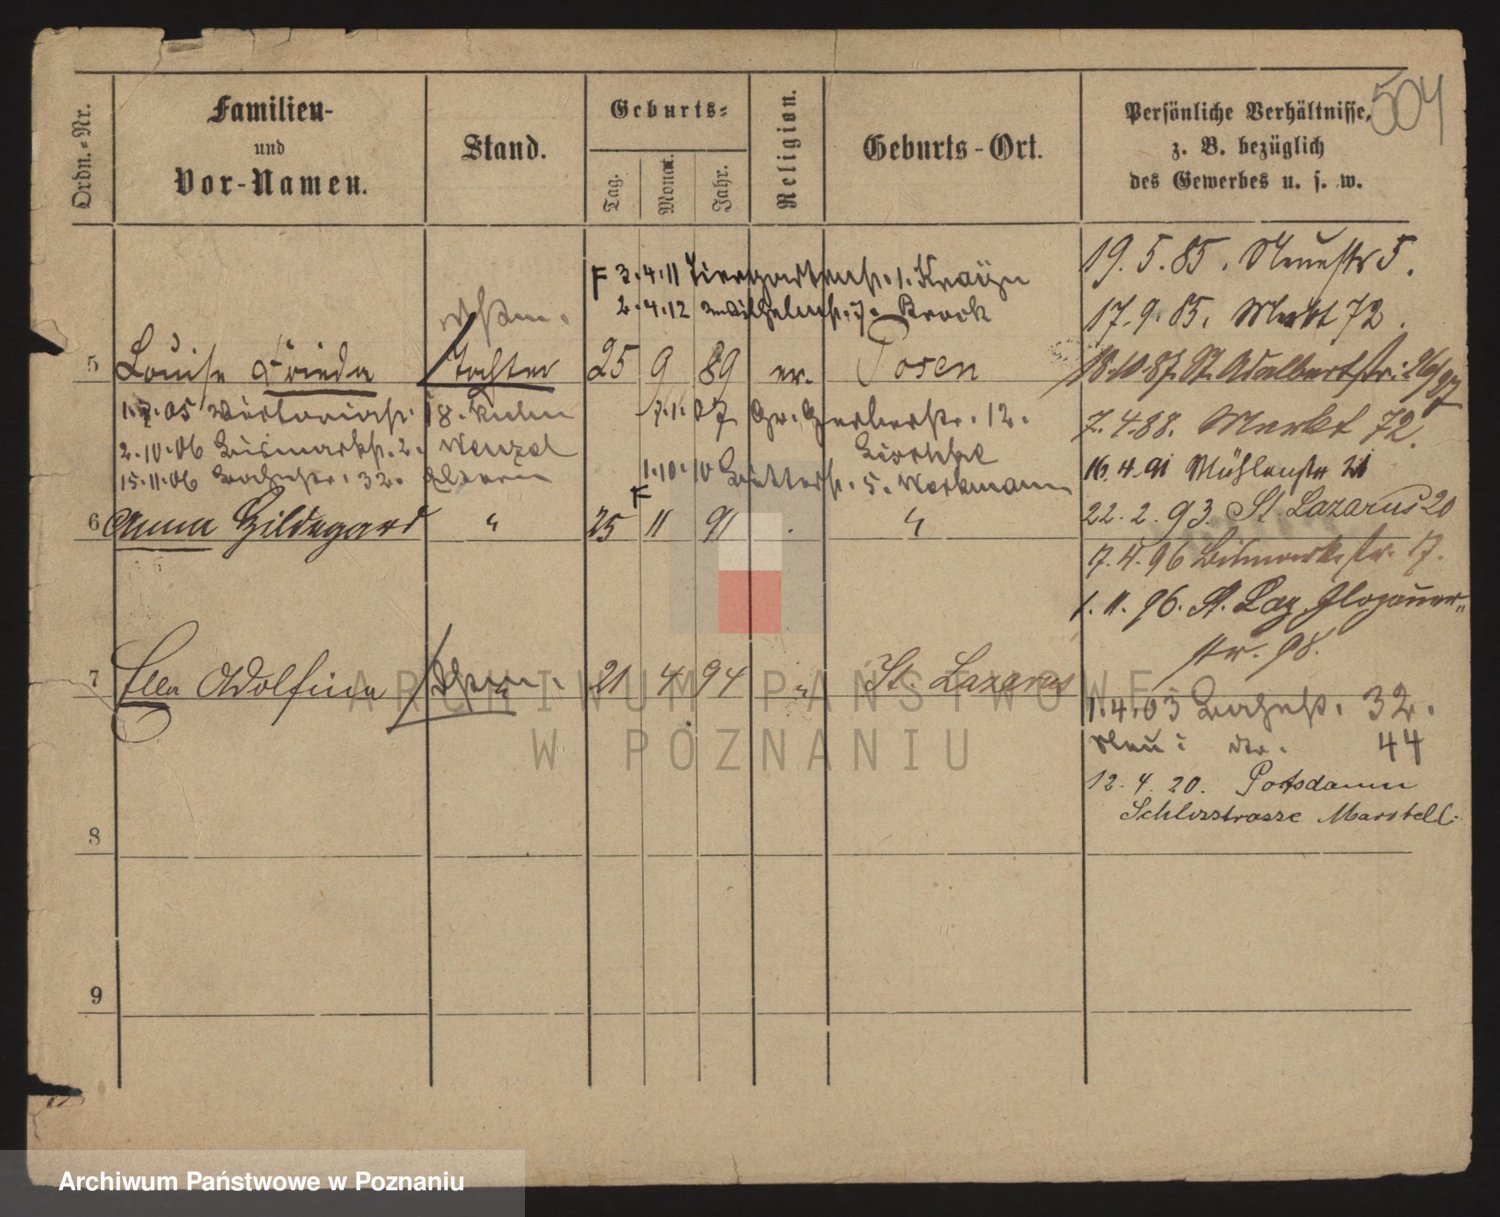 504
Ordn.-Nr.
Familien-
und
Vor-Namen.
Stand.
Geburts-
Tag.
Monat.
Jahr.
Religion.
Geburts-Ort.
Persönliche Verhältnisse,
z. B. bezüglich
des Gewerbes u. s. w.
F 3.4.11 Tiergartenstr. 1. Krayn
2.4.12 Wilhelmstr. 7. Brock
5 Louise Frieda Tochter 25 9 89 ev. Posen
1.7.05 Viktoriastr. 18. Kuhn
7.1.07 Gr. Gerberstr. 12.
2.10.06 Bismarckstr. 2. Wenzel
15.11.06 Bahnstr. 32.
1.10.10 Bitterstr. 5. Workmann
F
6 Anna Hildegard " 25 11 91 . "
7 Ella Adolfine 21 4 94 " St. Lazarus
8
9
19.5.85. Neuestr 5.
17.9.85. Markt 72.
18.10.87. St. Adalbertstr. 26/27
7.4.88. Markt 72.
16.4.91 Mühlenstr 21
22.2.93. St. Lazarus 20
7.4.96 Bismarckstr. 17.
1.11.96. St. Laz. Glogauer-
str. 98.
1.4.03 Bahnstr. 32.
Neu: do. 44
12.4.20. Potsdamm
Schlosstrasse Marstell.
ARCHIWUM PAŃSTWOWE
W POZNANIU
Archiwum Państwowe w Poznaniu